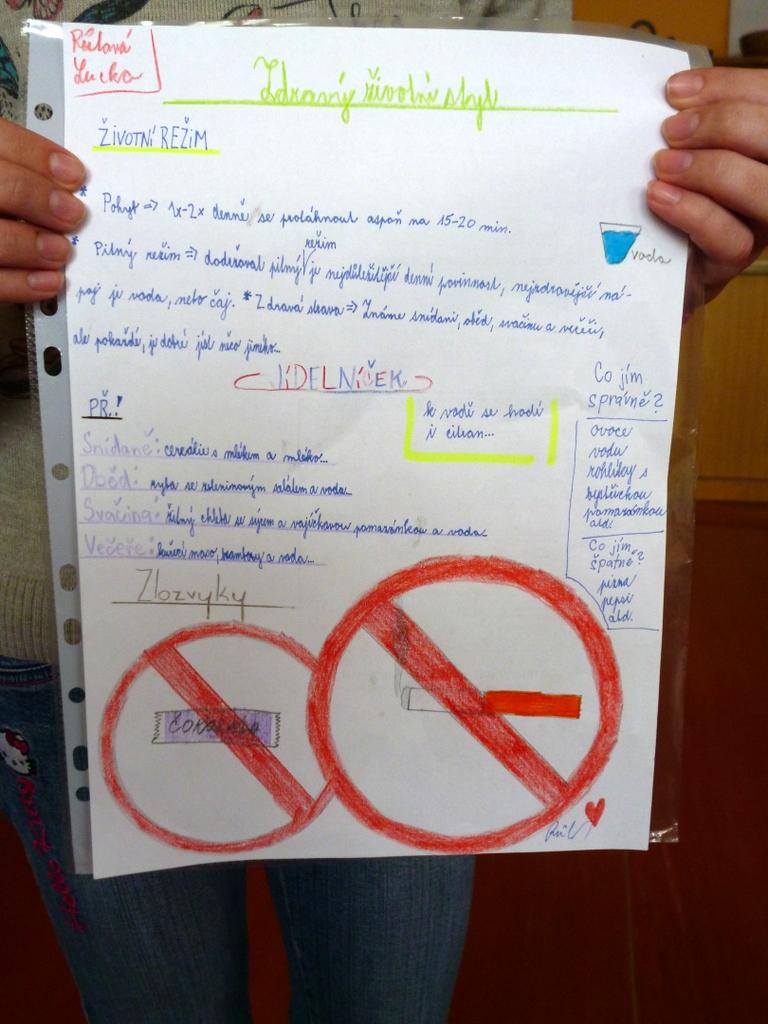 Růtová
Lucka
Zdravý životní styl
ŽIVOTNÍ REŽIM
* Pohyb => 1x-2x denně se protáhnout aspoň na 15-20 min.
voda
režim
* Pitný režim => dodržovat pitný je nejdůležitější denní povinnost, nejzdravější ná-
poj je voda, nebo čaj. * Zdravá strava => Známe snídani, oběd, svačinu a večeři,
ale pokaždé, je dobré jíst něco jiného...
JÍDELNÍČEK
PŘ.:
k vodě se hodí
i citron...
Snídaně: cereálie s mlékem a mléko...
Oběd: ryba se zeleninovým salátem a voda...
Svačina: žitný chleba se sýrem a vajíčkovou pomazánkou a voda
Večeře: kuřecí maso, brambory a voda...
Co jím
správně?
ovoce
vodu
rohlíky s
rybičkou
pomazánkou
atd.
Co jím
špatně?
pizza
pepsi
atd.
Zlozvyky
ČOKOLÁDA